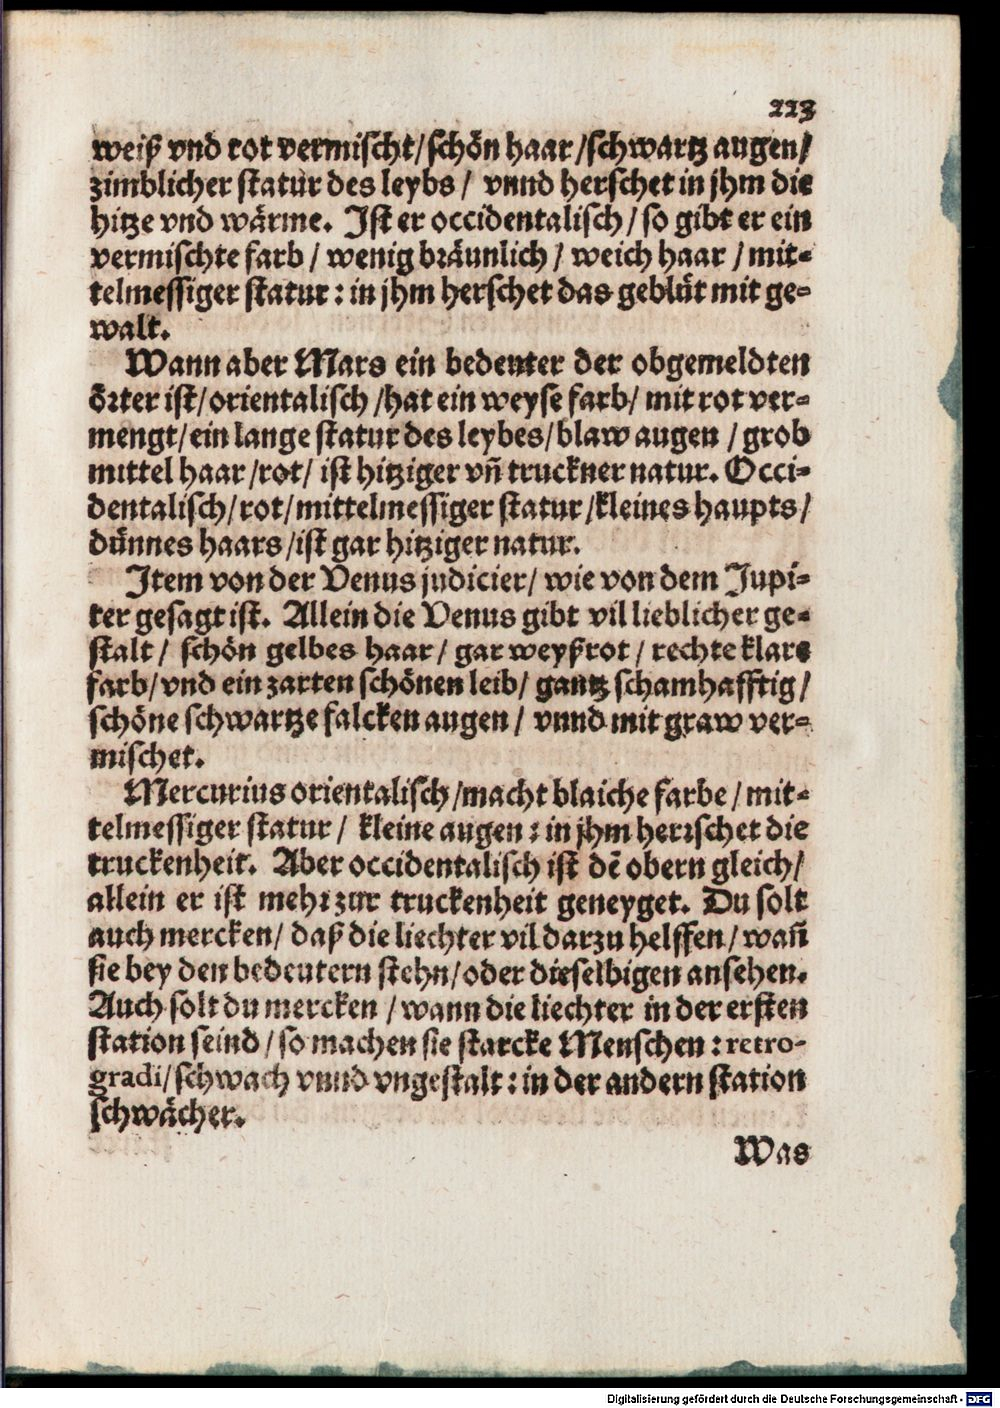 223
weiß vnd rot vermischt/schön haar/schwartz augen/
zimblicher statur des leybs/ vnnd herschet in jhm die
hitze vnd wärme. Ist er occidentalisch/so gibt er ein
vermischte farb/ wenig bräunlich/ weich haar/ mit-
telmessiger statur: in jhm herschet das geblüt mit ge-
walt.
Wann aber Mars ein bedeuter der obgemeldten
örter ist/orientalisch/hat ein weyse farb/ mit rot ver-
mengt/ein lange statur des leybes/blaw augen/ grob
mittel haar/rot/ ist hitziger vñ truckner natur. Occi-
dentalisch/rot/mittelmessiger statur/kleines haupts/
dünnes haars/ist gar hitziger natur.
Item von der Venus judicier/ wie von dem Jupi-
ter gesagt ist. Allein die Venus gibt vil lieblicher ge-
stalt/ schön gelbes haar/ gar weyßrot/ rechte klare
farb/vnd ein zarten schönen leib/ gantz schamhafftig/
schöne schwartze falcken augen/ vnnd mit graw ver-
mischet.
Mercurius orientalisch/macht blaiche farbe/mit-
telmessiger statur/ kleine augen: in jhm herrschet die
truckenheit. Aber occidentalisch ist dē obern gleich/
allein er ist mehr zur truckenheit geneyget. Du solt
auch mercken/ daß die liechter vil darzu helffen/wañ
sie bey den bedeutern stehn/oder dieselbigen ansehen.
Auch solt du mercken/wann die liechter in der ersten
station seind/so machen sie starcke Menschen: retro-
gradi/schwach vnnd vngestalt: in der andern station
schwächer.
Was
Digitalisierung gefördert durch die Deutsche Forschungsgemeinschaft - DFG